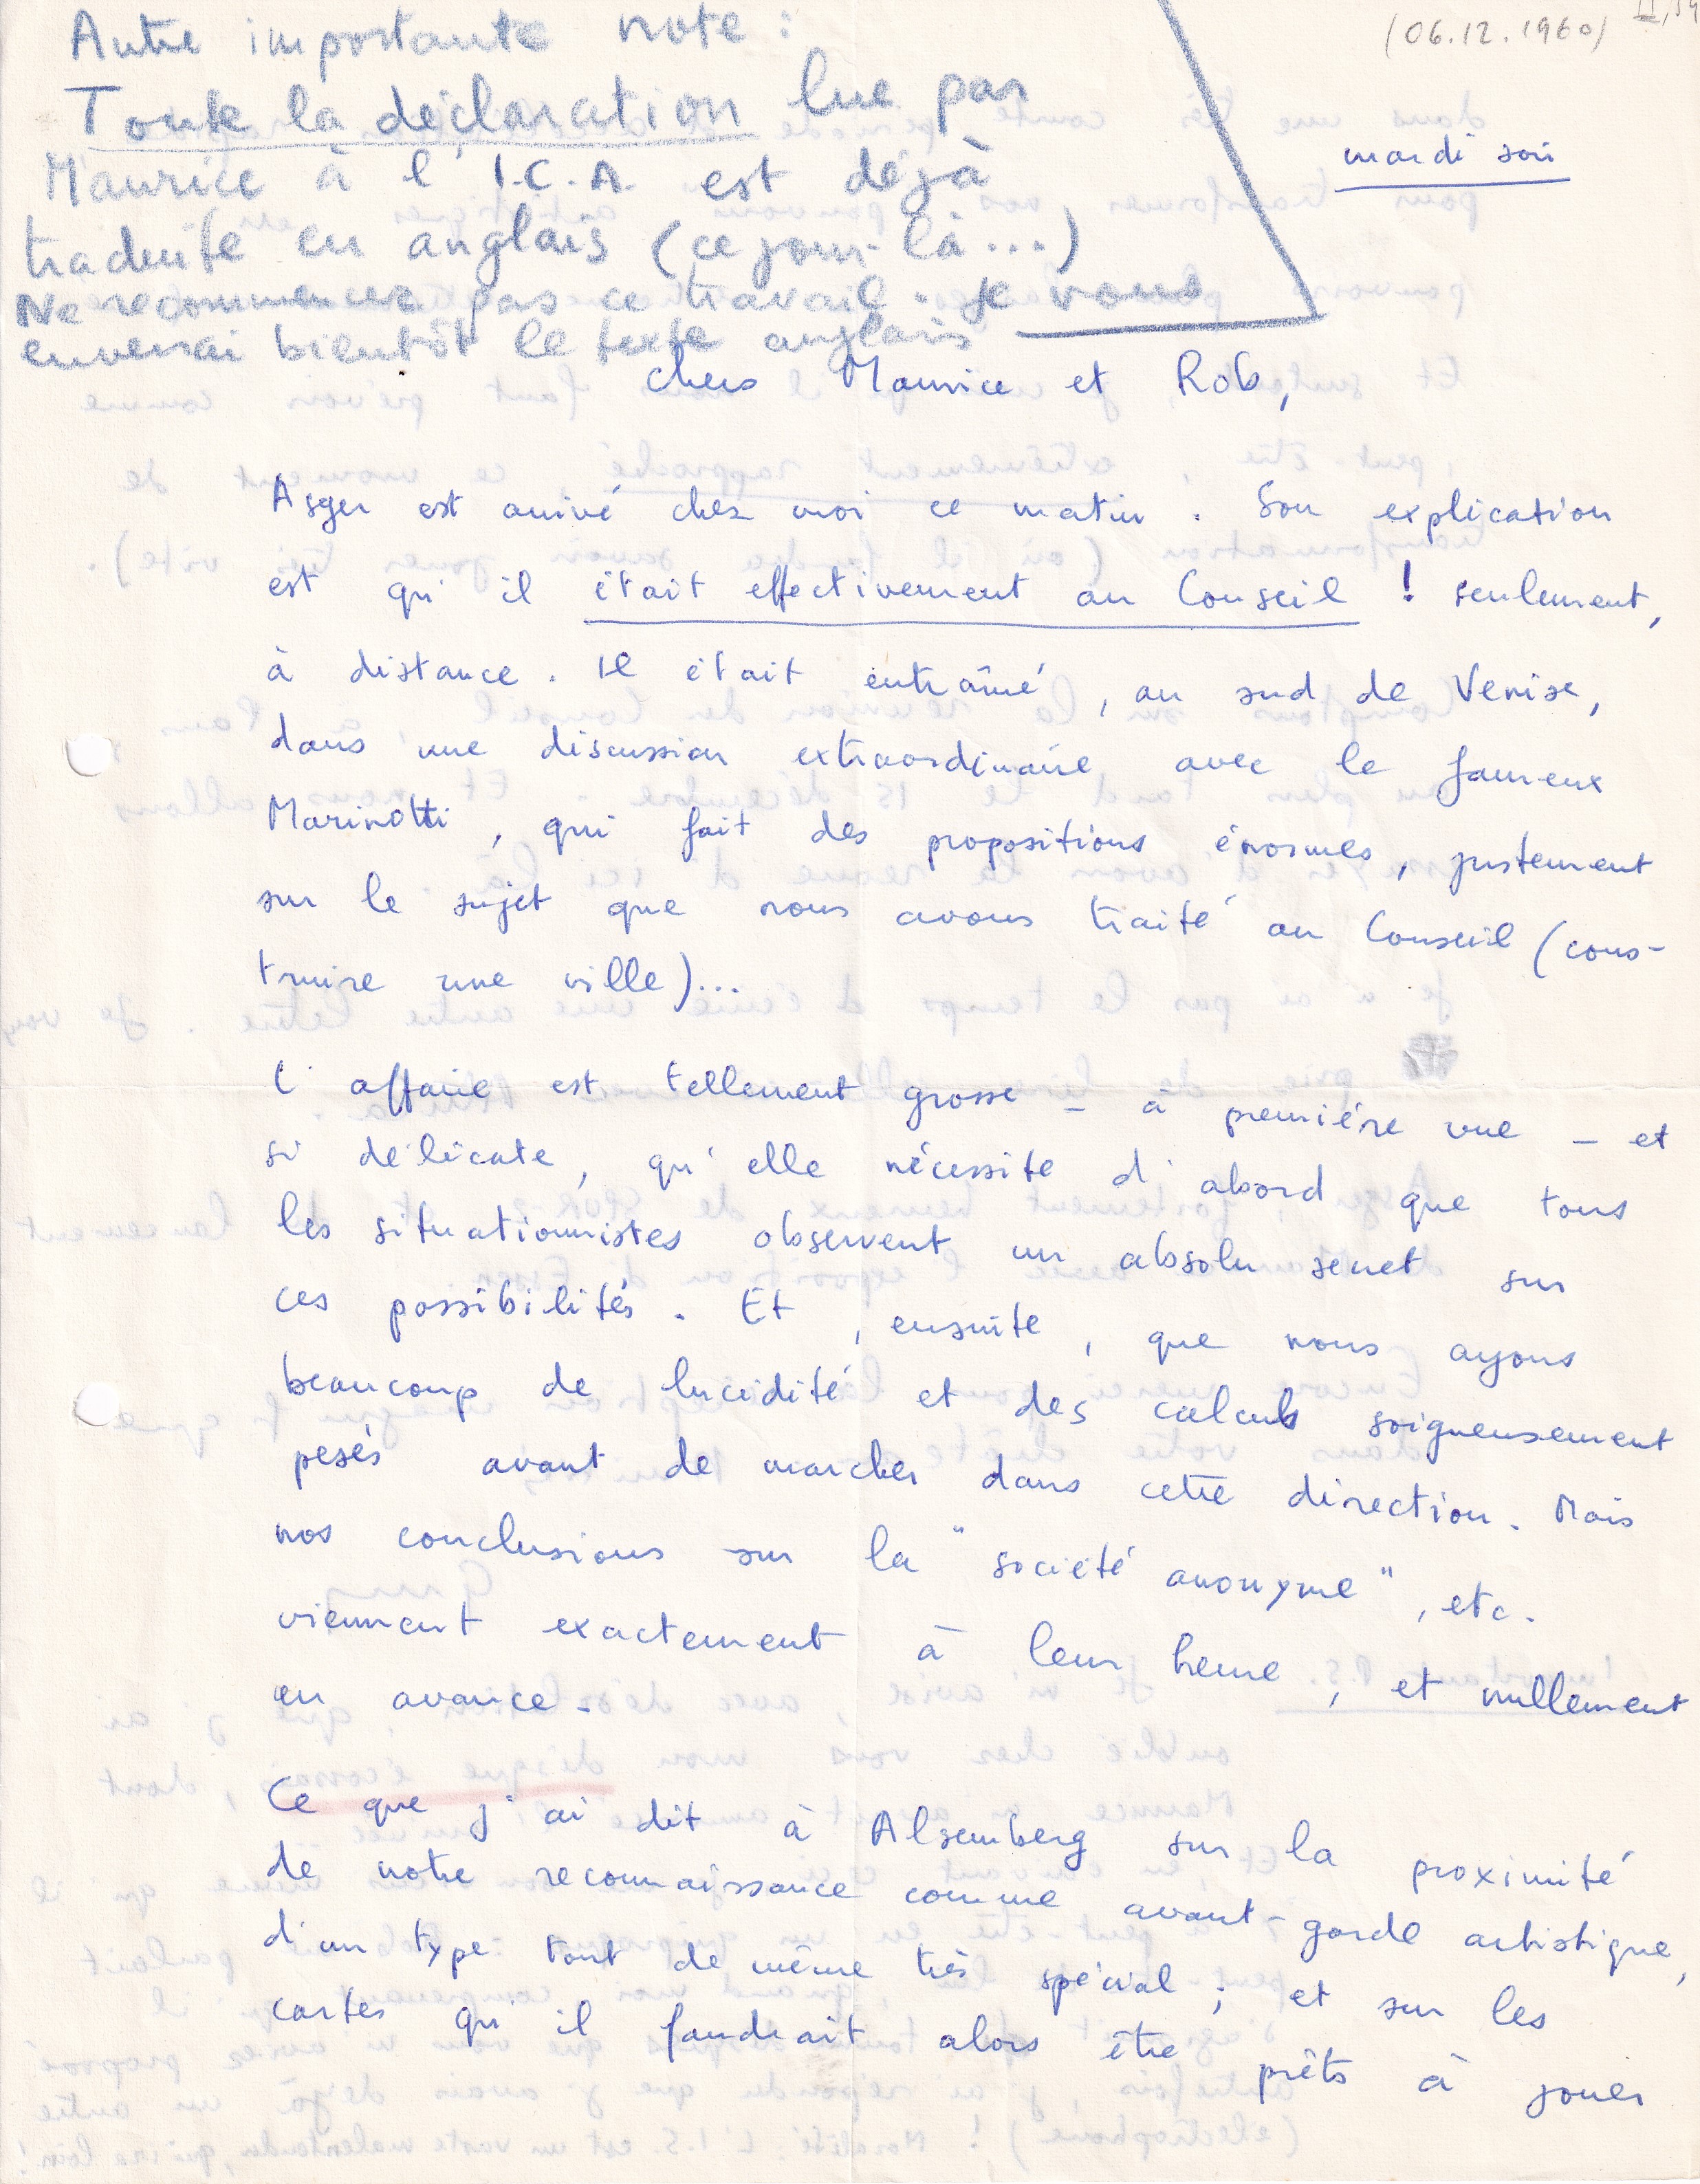 Autre importante note :
Toute la déclaration lue par
Maurice à l'I.C.A. est déjà
traduite en anglais (ce jour-là...)
Ne recommencez pas ce travail. Je vous
enverrai bientôt le texte anglais
(06.12.1960)
mardi soir
Chers Maurice et Rob,
Asger est arrivé chez moi ce matin. Son explication
est qu'il était effectivement au Conseil ! seulement,
à distance. Il était entraîné, au sud de Venise,
dans une discussion extraordinaire avec le fameux
Marinotti, qui fait des propositions énormes, justement
sur le sujet que nous avons traité au Conseil (cons-
truire une ville)...
L'affaire est tellement grosse - à première vue - et
si délicate, qu'elle nécessite d'abord que tous
les situationnistes observent un absolu secret sur
ces possibilités. Et, ensuite, que nous ayons
beaucoup de lucidité et des calculs soigneusement
pesés avant de marcher dans cette direction. Mais
nos conclusions sur la "société anonyme", etc.
viennent exactement à leur heure, et nullement
en avance.
Ce que j'ai dit à Alsemberg sur la proximité
de notre reconnaissance comme avant-garde artistique,
d'un type tout de même très spécial ; et sur les
cartes qu'il faudrait alors être prêts à jouer